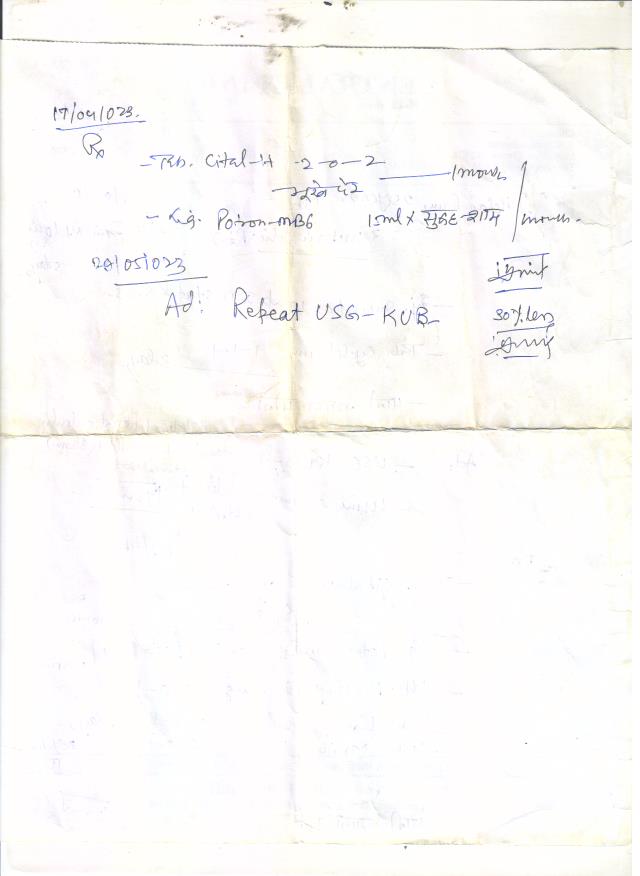 17/04/023.
Rx
- Tab. Cital-H 2-0-2
1 month
- Lig. Potron-MB6 15ml x सुबह शाम 1 month.
29/05/023
Ad: Repeat USG-KUB
30% less